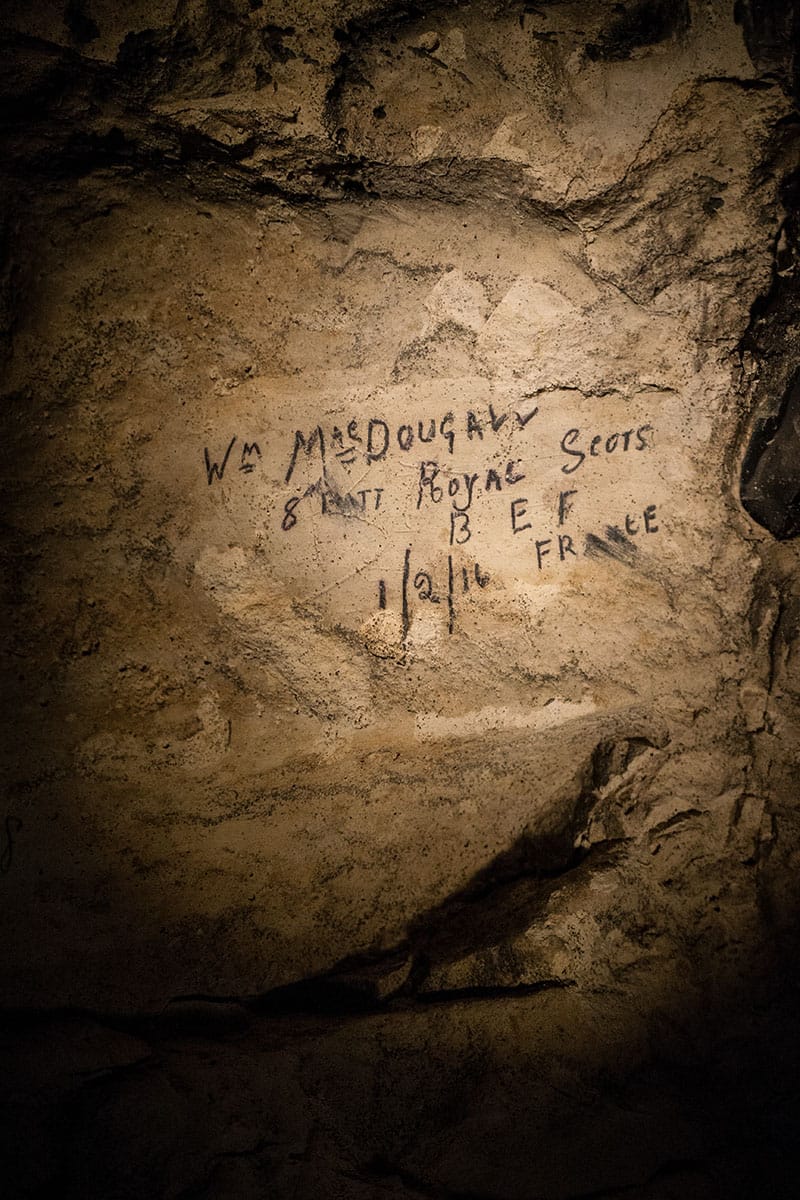 Wm MacDOUGALL
8th BATT ROYAL SCOTS
B E F
FRANCE
1/2/16